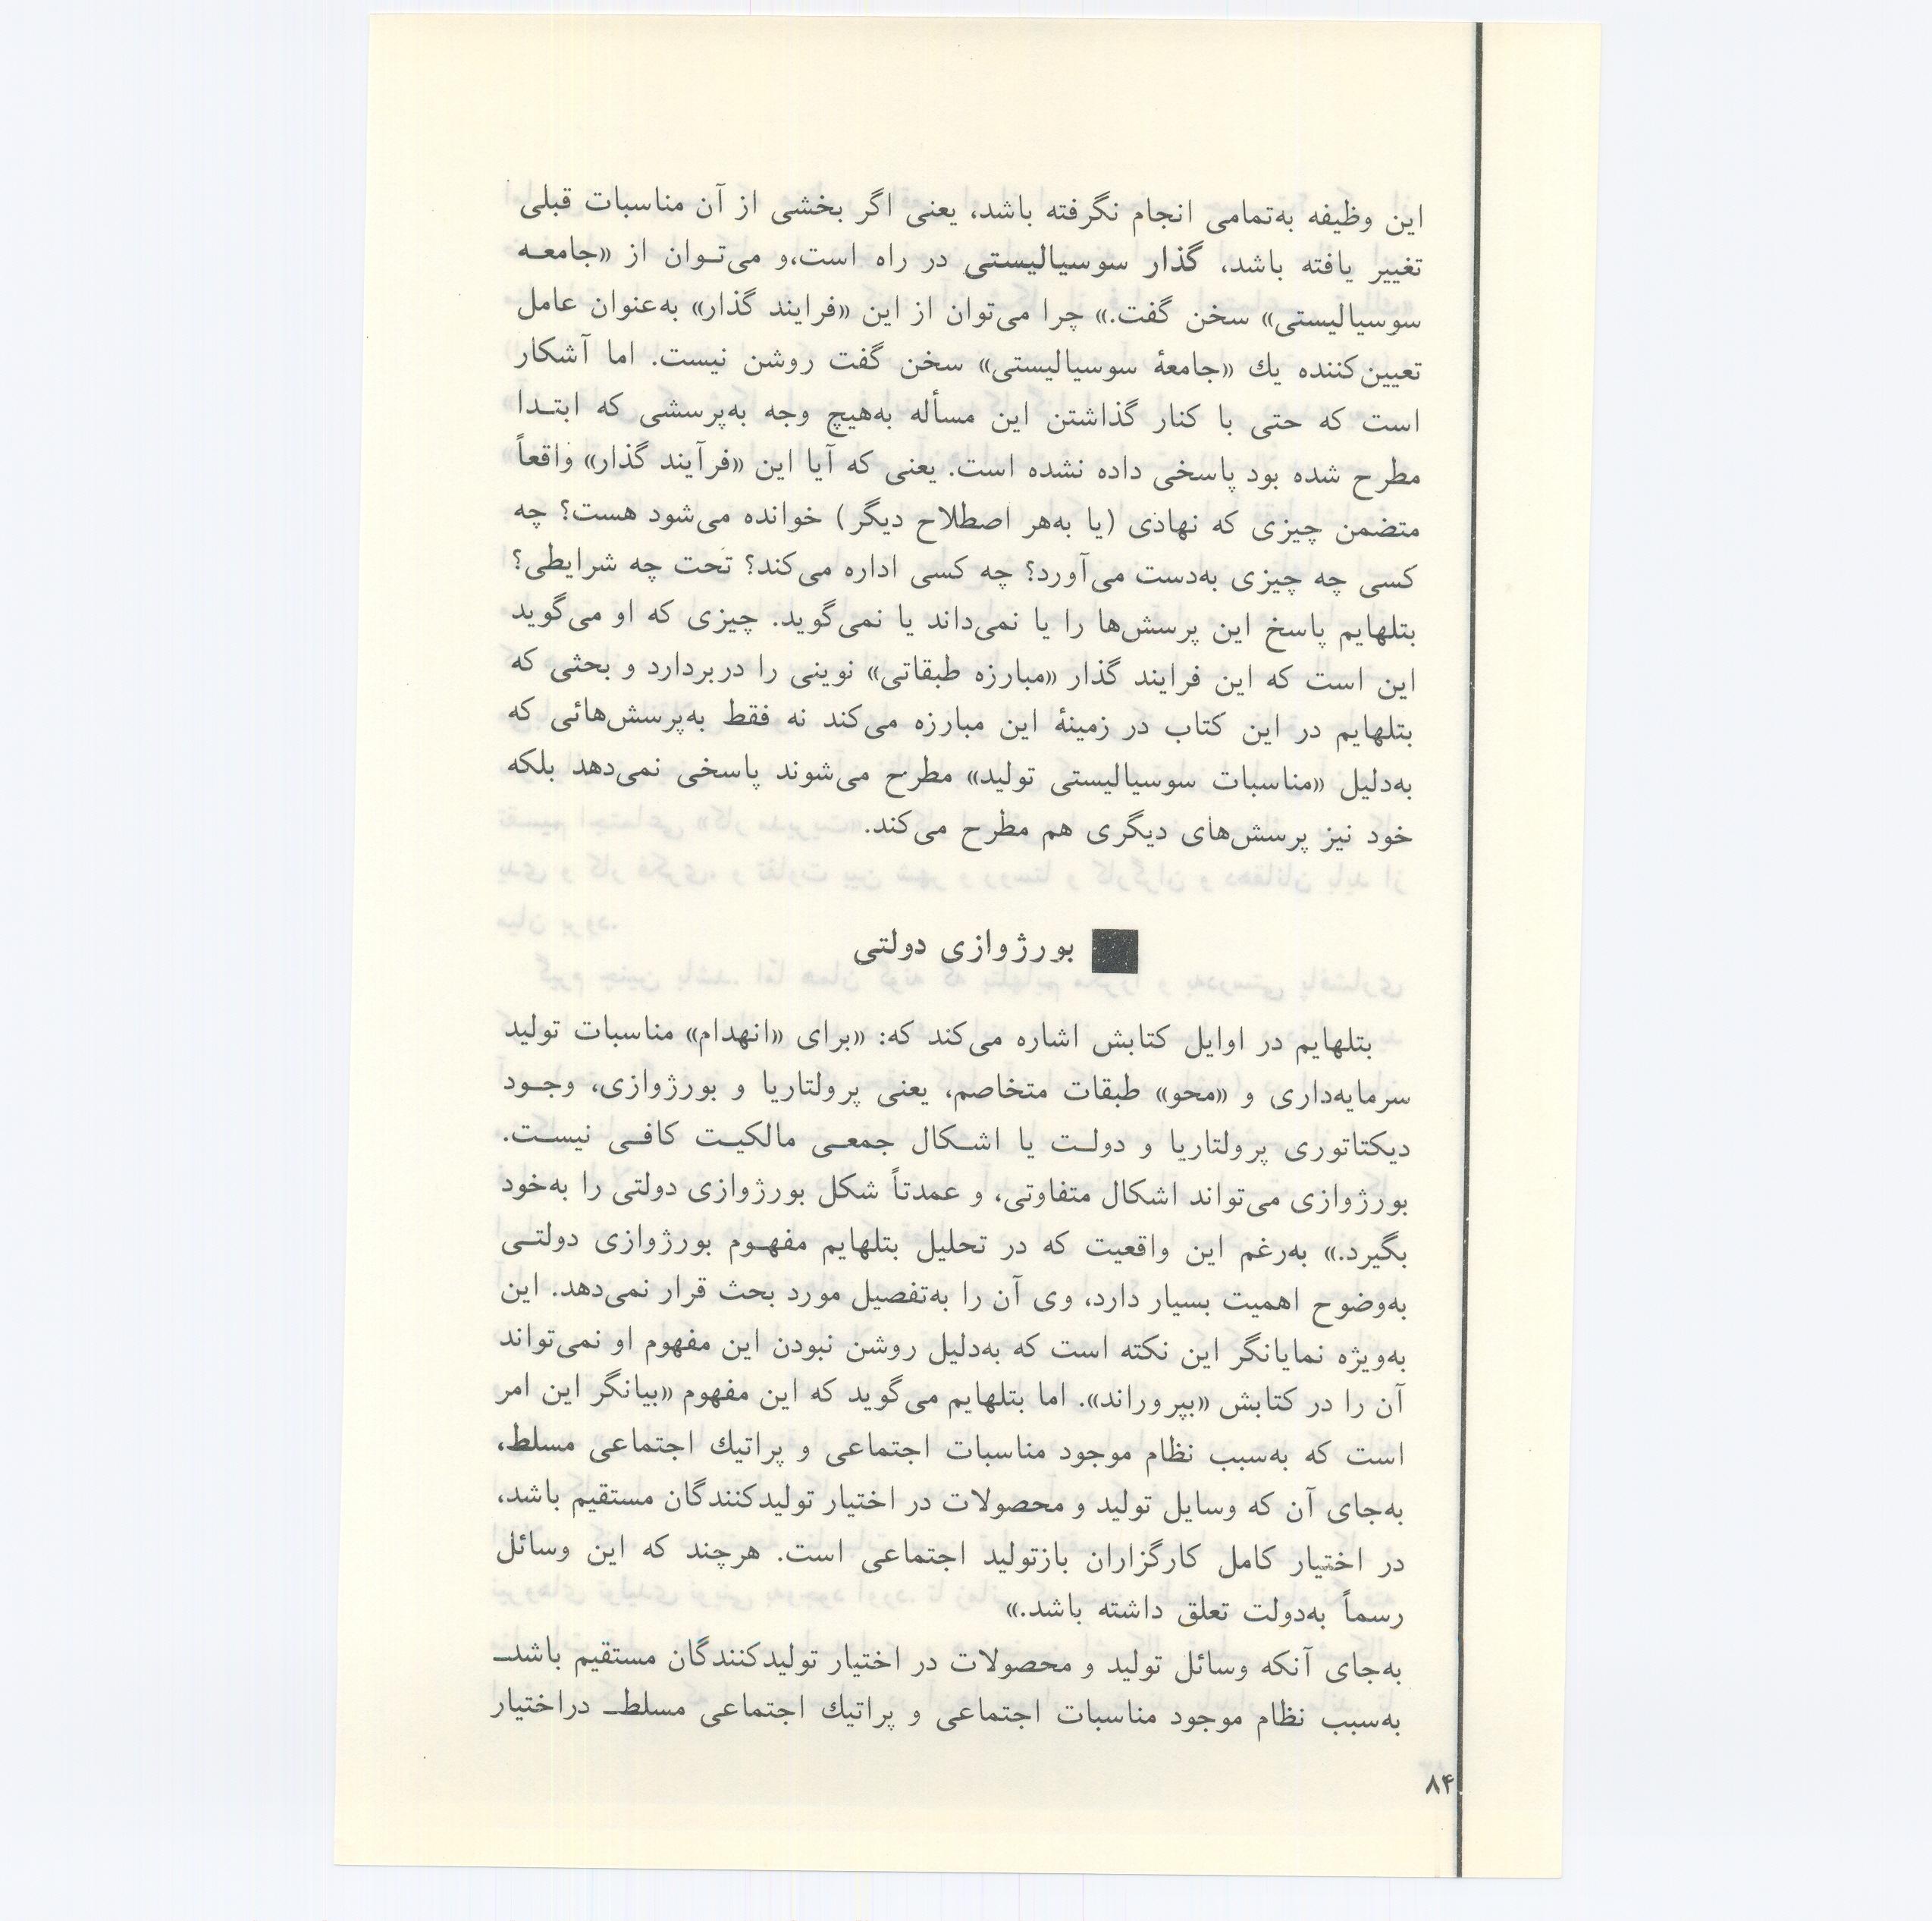 این وظیفه به‌تمامی انجام نگرفته باشد، یعنی اگر بخشی از آن مناسبات قبلی
تغییر یافته باشد، گذار سوسیالیستی در راه است،و می‌تـوان از «جامعـه
سوسیالیستی» سخن گفت.» چرا می‌توان از این «فرایند گذار» به‌عنوان عامل
تعیین‌کننده یك «جامعهٔ سوسیالیستی» سخن گفت روشن نیست. اما آشکار
است که حتی با کنار گذاشتن این مسأله به‌هیچ وجه به‌پرسشی که ابتـدا
مطرح شده بود پاسخی داده نشده است. یعنی که آیا این «فرآیند گذار» واقعاً
متضمن چیزی که نهادی (یا به‌هر اصطلاح دیگر) خوانده می‌شود هست؟ چه
کسی چه چیزی به‌دست می‌آورد؟ چه کسی اداره می‌کند؟ تحت چه شرایطی؟
بتلهایم پاسخ این پرسش‌ها را یا نمی‌داند یا نمی‌گوید. چیزی که او می‌گوید
این است که این فرایند گذار «مبارزه طبقاتی» نوینی را دربردارد و بحثی که
بتلهایم در این کتاب در زمینهٔ این مبارزه می‌کند نه فقط به‌پرسش‌هائی که
به‌دلیل «مناسبات سوسیالیستی تولید» مطرح می‌شوند پاسخی نمی‌دهد بلکه
خود نیز پرسش‌های دیگری هم مطرح می‌کند.
بورژوازی دولتی
بتلهایم در اوایل کتابش اشاره می‌کند که: «برای «انهدام» مناسبات تولید
سرمایه‌داری و «محو» طبقات متخاصم، یعنی پرولتاریا و بورژوازی، وجـود
دیکتاتوری پرولتاریا و دولـت یا اشـکال جمعـی مالکیـت کافـی نیسـت.
بورژوازی می‌تواند اشکال متفاوتی، و عمدتاً شکل بورژوازی دولتی را به‌خود
بگیرد.» به‌رغم این واقعیت که در تحلیل بتلهایم مفهـوم بورژوازی دولتـی
به‌وضوح اهمیت بسیار دارد، وی آن را به‌تفصیل مورد بحث قرار نمی‌دهد. این
به‌ویژه نمایانگر این نکته است که به‌دلیل روشن نبودن این مفهوم او نمی‌تواند
آن را در کتابش «بپروراند». اما بتلهایم می‌گوید که این مفهوم «بیانگر این امر
است که به‌سبب نظام موجود مناسبات اجتماعی و پراتیك اجتماعی مسلط،
به‌جای آن که وسایل تولید و محصولات در اختیار تولیدکنندگان مستقیم باشد،
در اختیار کامل کارگزاران بازتولید اجتماعی است. هرچند که این وسائل
رسماً به‌دولت تعلق داشته باشد.»
به‌جای آنکه وسائل تولید و محصولات در اختیار تولیدکنندگان مستقیم باشدـ
به‌سبب نظام موجود مناسبات اجتماعی و پراتیك اجتماعی مسلطـ دراختیار
۸۴